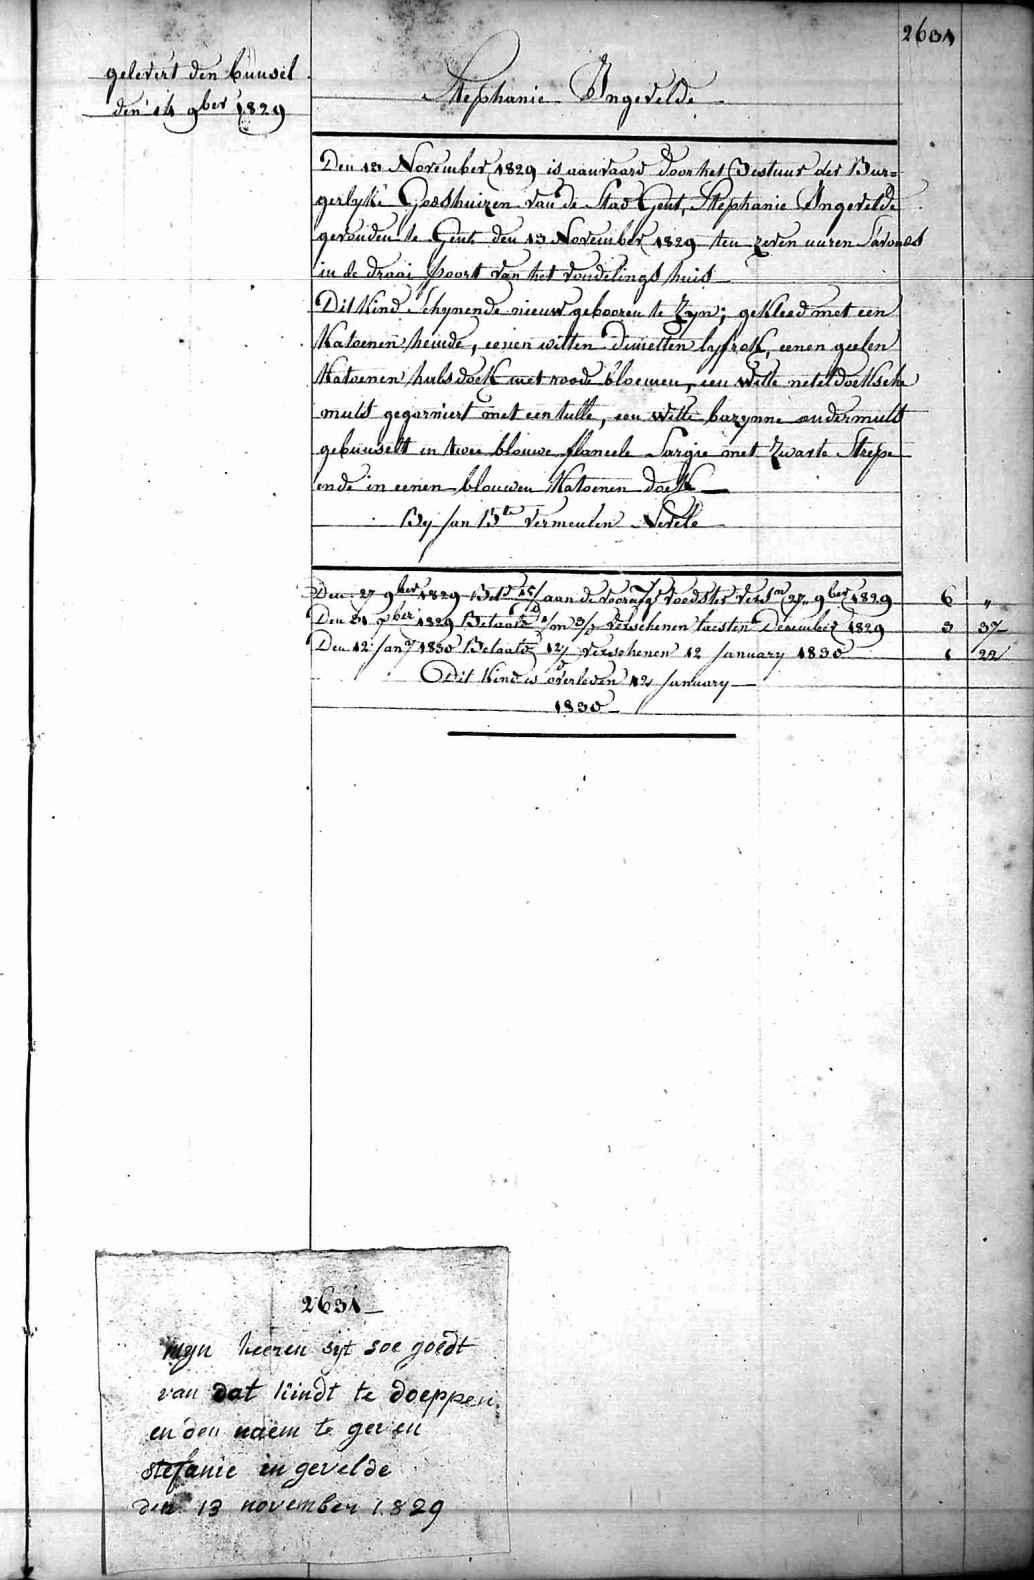 2631
gelevert den bunsel
den 14 9ber 1829
Stephanie Ingevelde
Den 13 November 1829 is aanvaard door het Bestuur der Bur=
gerlyke Godshuizen van de Stad Gent, Stephanie Ingevelde
gevonden te Gent den 13 November 1829 ten zeven uuren S'avonds
in de draai poort van het vondelings huis
Dit Kind Schynende nieuw gebooren te Zyn; gekleed met een
Katoenen hemde, eenen witten dimetten lyfrok, eenen geelen
Katoenen halsdoek met roode bloemen, een witte neteldoeksche
muts gegarniert met een tulle, een witte bazynne ondermuts
gebunselt in twee blauwe flaneele Sargie met Zwarte Strepe
ende in eenen blauwen Katoenen doek
By Jan Bte Vermeulen Nevele
Den 27 9ber 1829 aan de voedster 27 9ber 1829 6 "
Den 31 xber 1829 Betaald verschenen laesten December 1829 3 37
Den 12 Jany 1830 Betaald 12/ verschenen 12 January 1830 1 22
Dit Kind is overleden 12 January
1830
2631
myn heeren syt soe goedt
van dat kindt te doeppen
en den naem te geven
stefanie in gevelde
den 13 november 1829